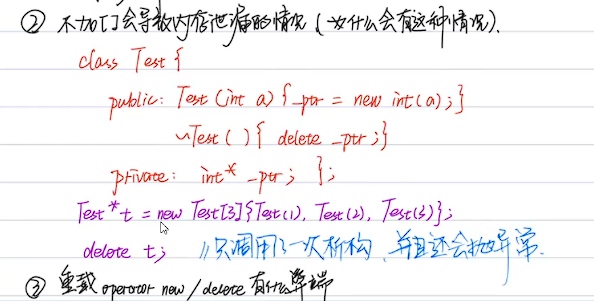 ② 不加[]会导致内存泄漏的情况(为什么会有这种情况).
class Test {
public: Test (int a) { _ptr = new int(a); }
~Test () { delete _ptr; }
private: int* _ptr; };
Test* t = new Test[3]{Test(1), Test(2), Test(3)};
delete t; //只调用了一次析构,并且还会抛异常.
③ 重载 operator new / delete 有什么弊端